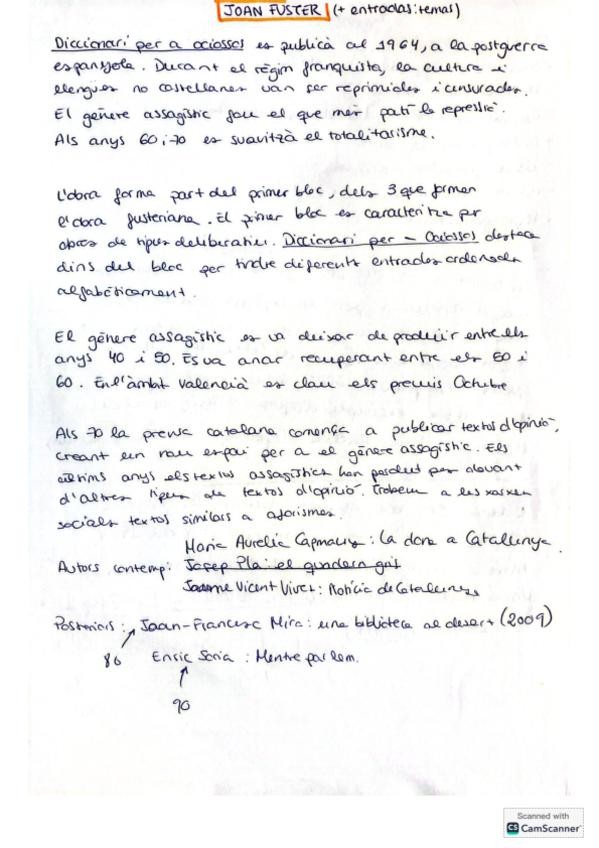 JOAN FUSTER (+ entradas: temas)
Diccionari per a ociosos es publicà al 1964, a la postguerra
espanyola. Durant el règim franquista, la cultura i
llengües no castellanes van ser reprimides i censurades.
El gènere assagístic fou el que més patí la repressió.
Als anys 60 i 70 es suavitzà el totalitarisme.
L'obra forma part del primer bloc, dels 3 que formen
l'obra fusteriana. El primer bloc es caracteritza per
obres de tipus deliberatiu. Diccionari per a Ociosos destaca
dins del bloc per tindre diferents entrades ordenades
alfabèticament.
El gènere assagístic es va deixar de produir entre els
anys 40 i 50. Es va anar recuperant entre els 50 i
60. En l'àmbit valencià es clau els premis Octubre
Als 70 la prensa catalana comença a publicar textos d'opinió,
creant un nou espai per a el gènere assagístic. Els
últims anys els textos assagístics han perdut pes davant
d'altres tipus de textos d'opinió. Trobem a les xarxes
socials textos similars a aforismes.
Maria Aurèlia Capmany: la dona a Catalunya.
Autors contemp: Josep Pla: el quadern gris
Jaume Vicent Vives: Notícia de Catalunya
Posteriors: Joan-Francesc Mira: una biblioteca al desert (2009)
80 Enric Soria: Mentre parlem.
90
Scanned with
CS CamScanner